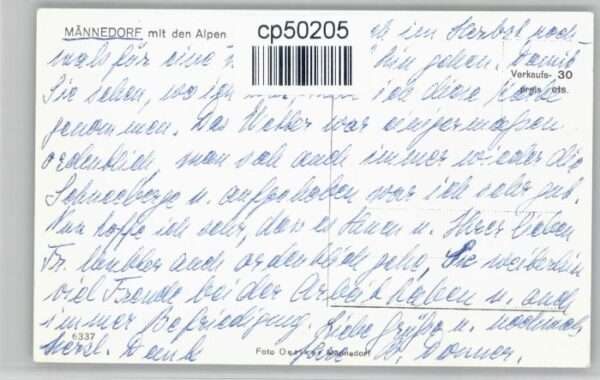 MÄNNEDORF mit den Alpen
cp50205
ich im Herbst noch-
mals für eine hin gehen. Damit
Verkaufs- 30
preis cts.
Sie sehen, wo ich ich diese Karte
genommen. Das Wetter war einigermassen
ordentlich, man sah auch immer wieder die
Schneeberge u. aufgehoben war ich sehr gut.
Nun hoffe ich sehr, dass es Ihnen u. Ihrer lieben
Fr. auch ordentlich geht, Sie weiterhin
viel Freude bei der Arbeit haben u. auch
immer Befriedigung. Liebe Grüße u. nochmals
6337
herzl. Dank Ihre Donner.
Foto Männedorf